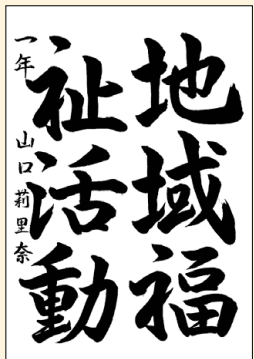 地域福
祉活動
一年 山口莉里奈